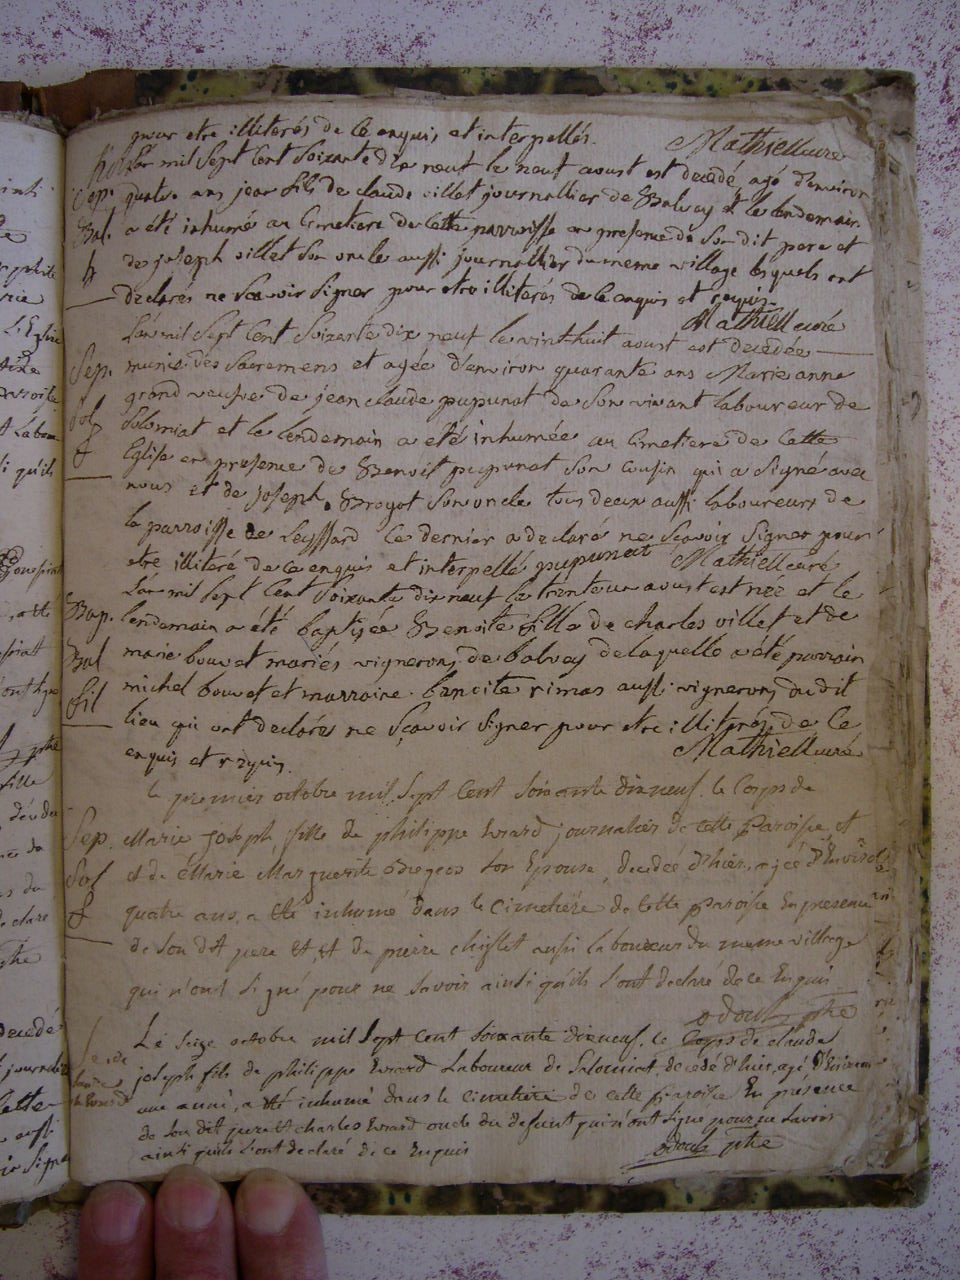 pour etre illiterés de ce enquis et interpellés. Mathieu curé
L'an mil sept cent soixante dix neuf le neuf aoust est decedé, agé d'environ
Sep. quatre ans jean fils de claude villet journallier de Balvay et le lendemain
Bal. a été inhumé au Cimetiere de Cette parroisse en presence de son dit pere et
de joseph villet son oncle aussi journallier du meme village lesquels ont
declarés ne sçavoir signer pour etre illiterés de ce enquis et requis.
Mathieu curé
L'an mil sept cent soixante dix neuf le vint huit aoust est decedée
Sep. munie des sacremens et agée d'environ quarante ans Marie anne
grand veufve de jean claude pupunat de son vivant laboureur de
Sol Solomiat et le lendemain a été inhumée au Cimetiere de Cette
Eglise en presence de Benoit pupunat son cousin qui a signé avec
nous et de joseph Broyat son oncle tous deux aussi laboureurs de
la parroisse de Leyssard le dernier a declaré ne sçavoir signer pour
etre illiteré de ce enquis et interpellé pupunat Mathieu curé
L'an mil sept cent soixante dix neuf le trente un aoust est née et le
Bap. lendemain a été baptisée Benoite fille de charles villet et de
Bal marie bouvet mariés vignerons de balvay de laquelle a été parrain
fil michel bouvet et marraine benoite rimas aussi vignerons du dit
lieu qui ont declarés ne sçavoir signer pour etre illiterés de ce
enquis et requis. Mathieu curé
le premier octobre mil sept cent soixante dix neuf le Corps de
Sep. Marie joseph, fille de philippe Evrard journalier de cette Paroisse, et
Sol et de Marie Marguerite son Epouse, decedée d'hier, agée d'Environ
quatre ans, a été inhumé dans le cimetière de cette paroisse En presence
de son dit pere et de pierre chiflet aussi laboureur du meme village
qui n'ont signé pour ne savoir ainsi qu'ils l'ont declaré de ce Enquis
ptre
Le seize octobre mil sept cent soixante dix neuf, le Corps de claude
joseph fils de philippe Evrard Laboureur de Salomiat, decedé d'hier, agé d'Environ
une année, a été inhumé dans le cimetiere de cette Paroisse En presence
de son dit pere et charles Evrard oncle du defunt qui n'ont signé pour ne savoir
ainsi qu'ils l'ont declaré de ce Enquis ptre